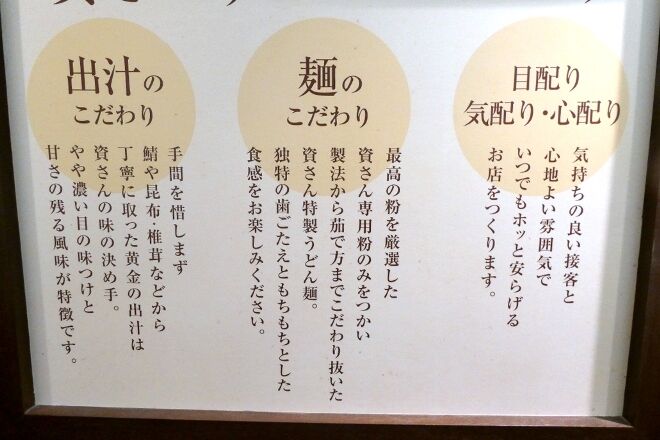 出汁の
こだわり
手間を惜しまず
鯖や昆布・椎茸などから
丁寧に取った黄金の出汁は
資さんの味の決め手。
やや濃い目の味つけと
甘さの残る風味が特徴です。
麺の
こだわり
最高の粉を厳選した
資さん専用粉のみをつかい
製法から茹で方までこだわり抜いた
資さん特製うどん麺。
独特の歯ごたえともちもちとした
食感をお楽しみください。
目配り
気配り・心配り
気持ちの良い接客と
心地よい雰囲気で
いつでもホッと安らげる
お店をつくります。